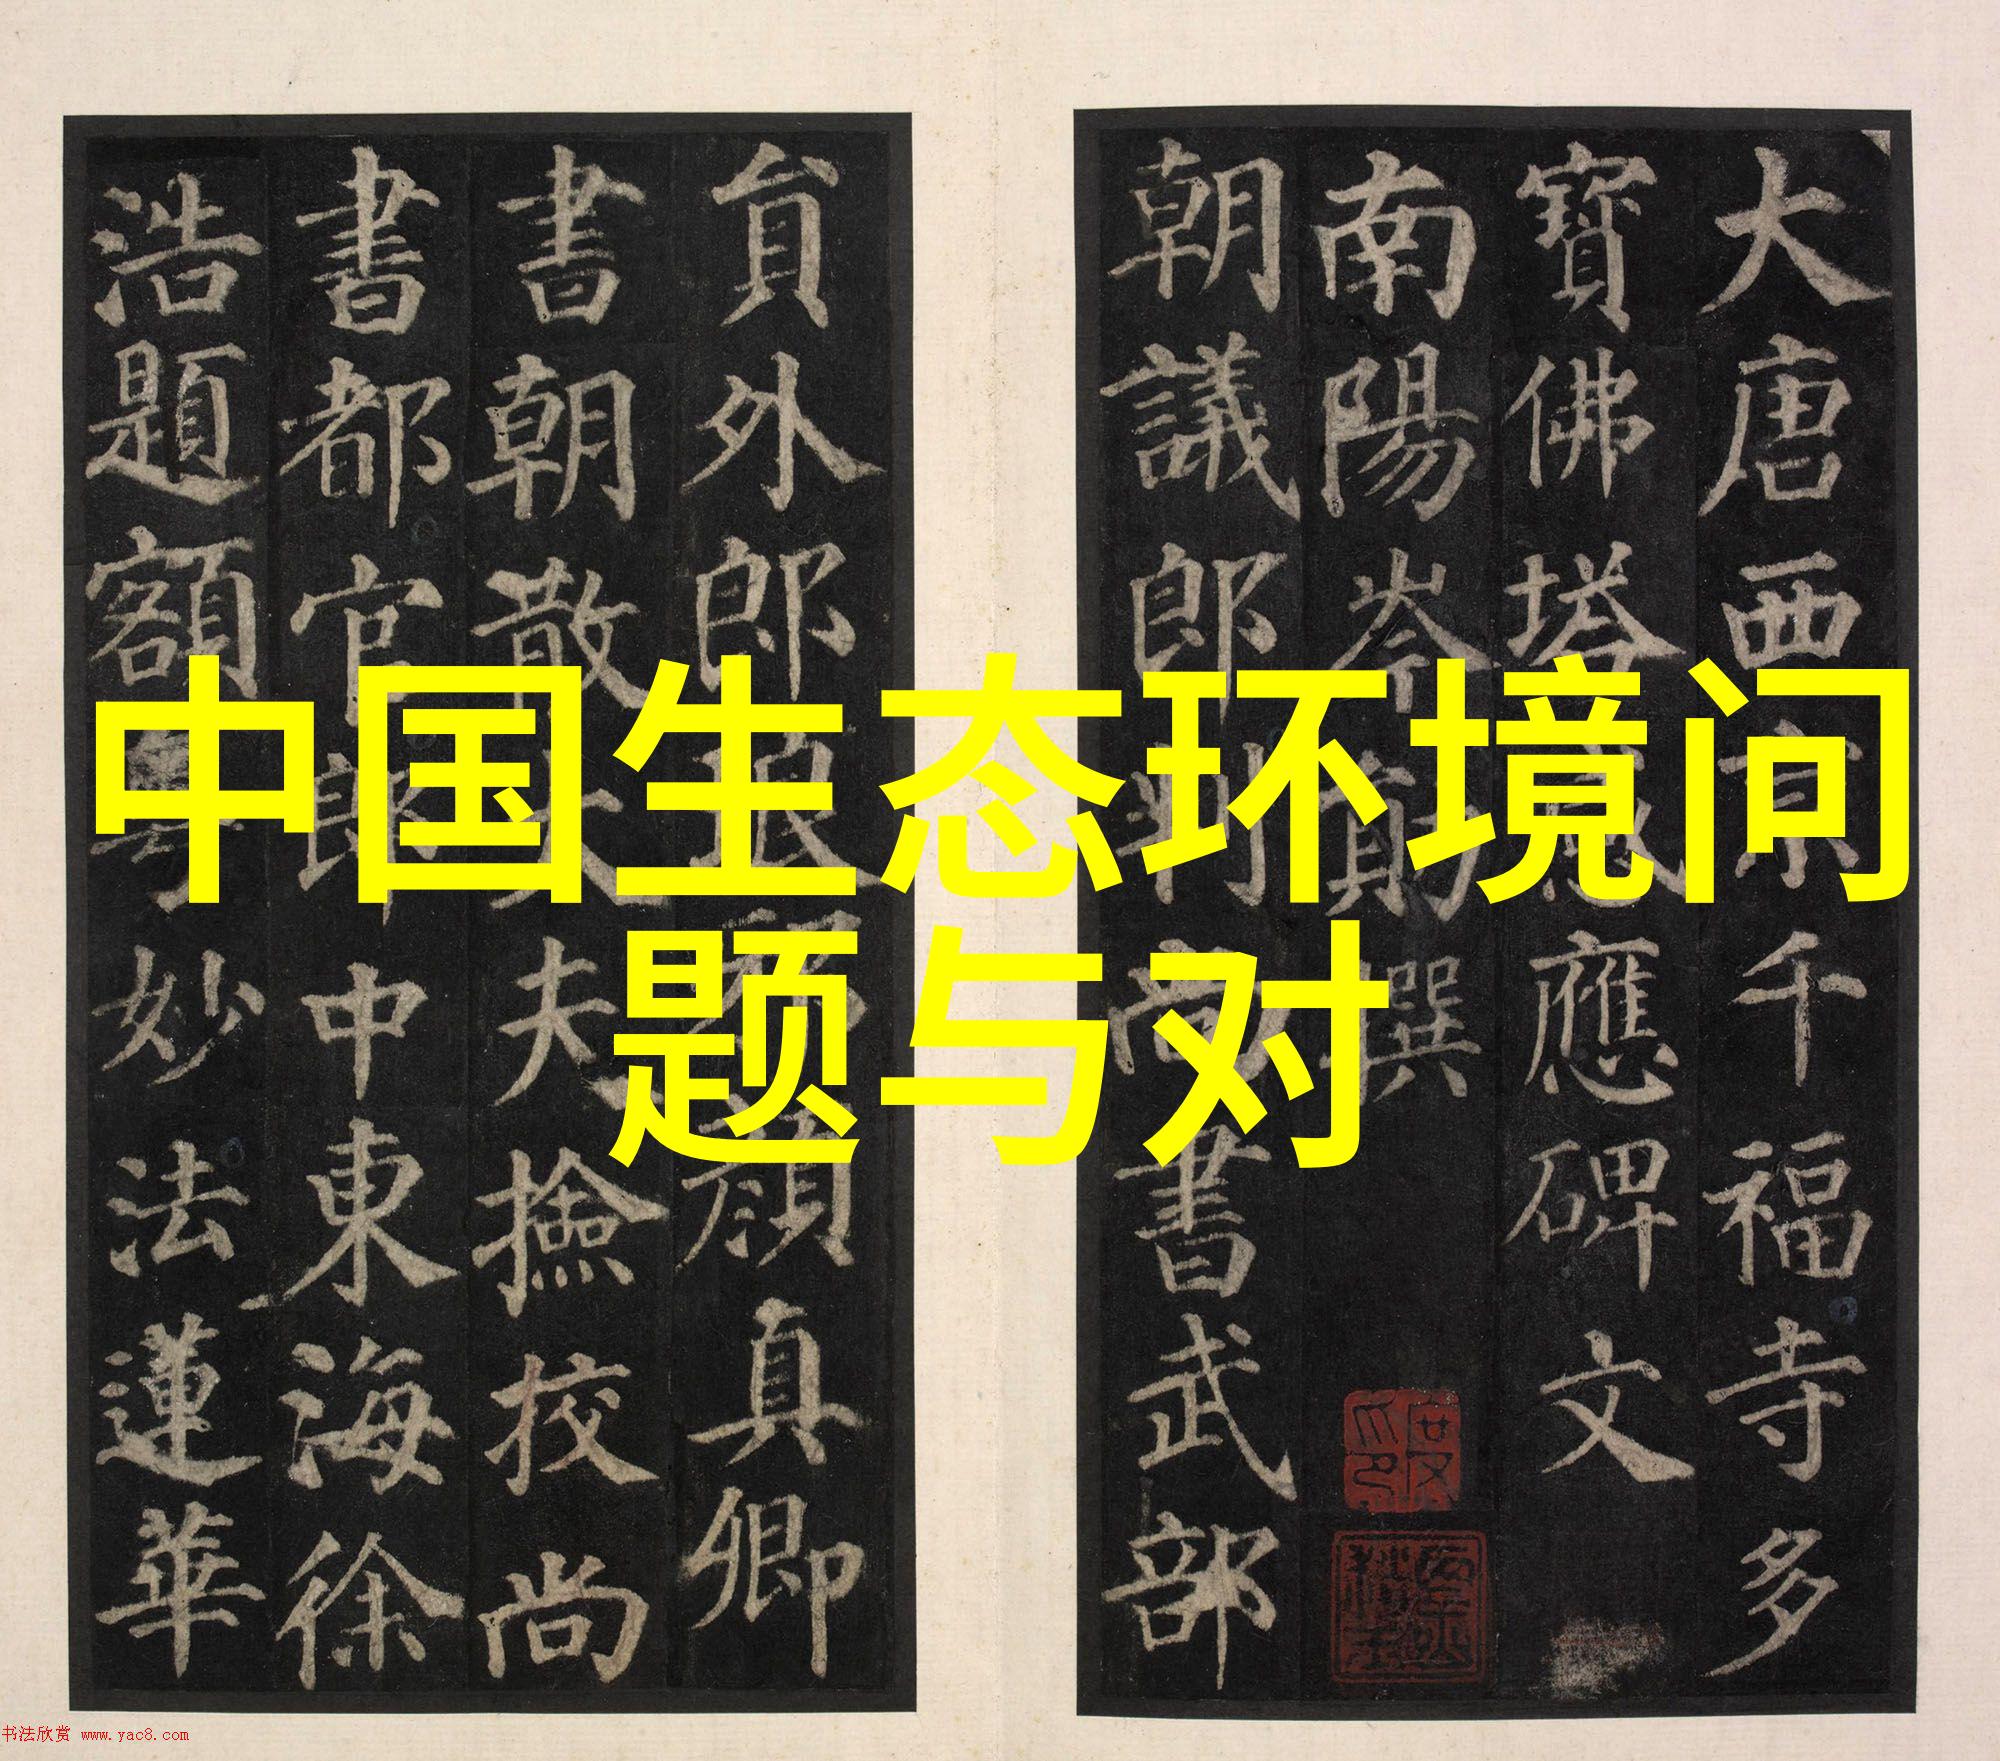 大唐西京千福寺多
寶佛塔感應碑文
南陽岑勛撰
朝議郎判尚書武部
員外郎琅邪顏真卿
書朝散大夫撿校尚
書都官郎中東海徐
浩題額
妙法蓮華
中国生态环境问
题与对
书法欣赏 www.yac8.com